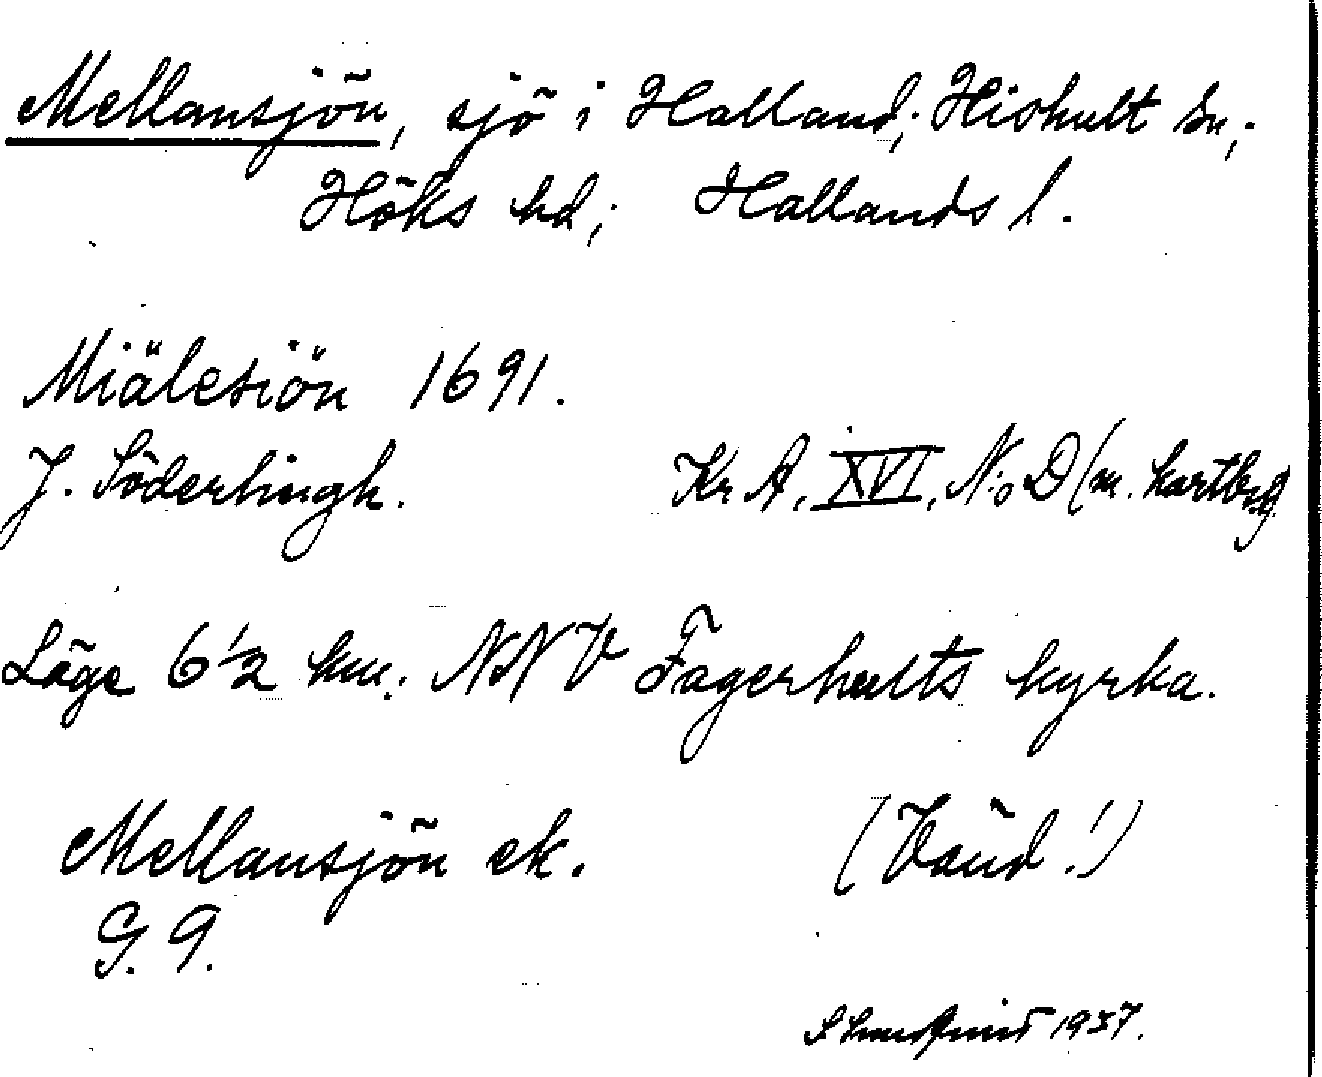 Mellansjön, sjö i Halland; Hishult sn,;
Höks hd; Hallands l.
Miälesiön 1691.
J. Söderlingh. Kr A, XVI, N:o D (m. kartbg)
Läge 6 1/2 km. NNV Fagerhults kyrka.
Mellansjön ek. (Vänd!)
G. 9.
1937.